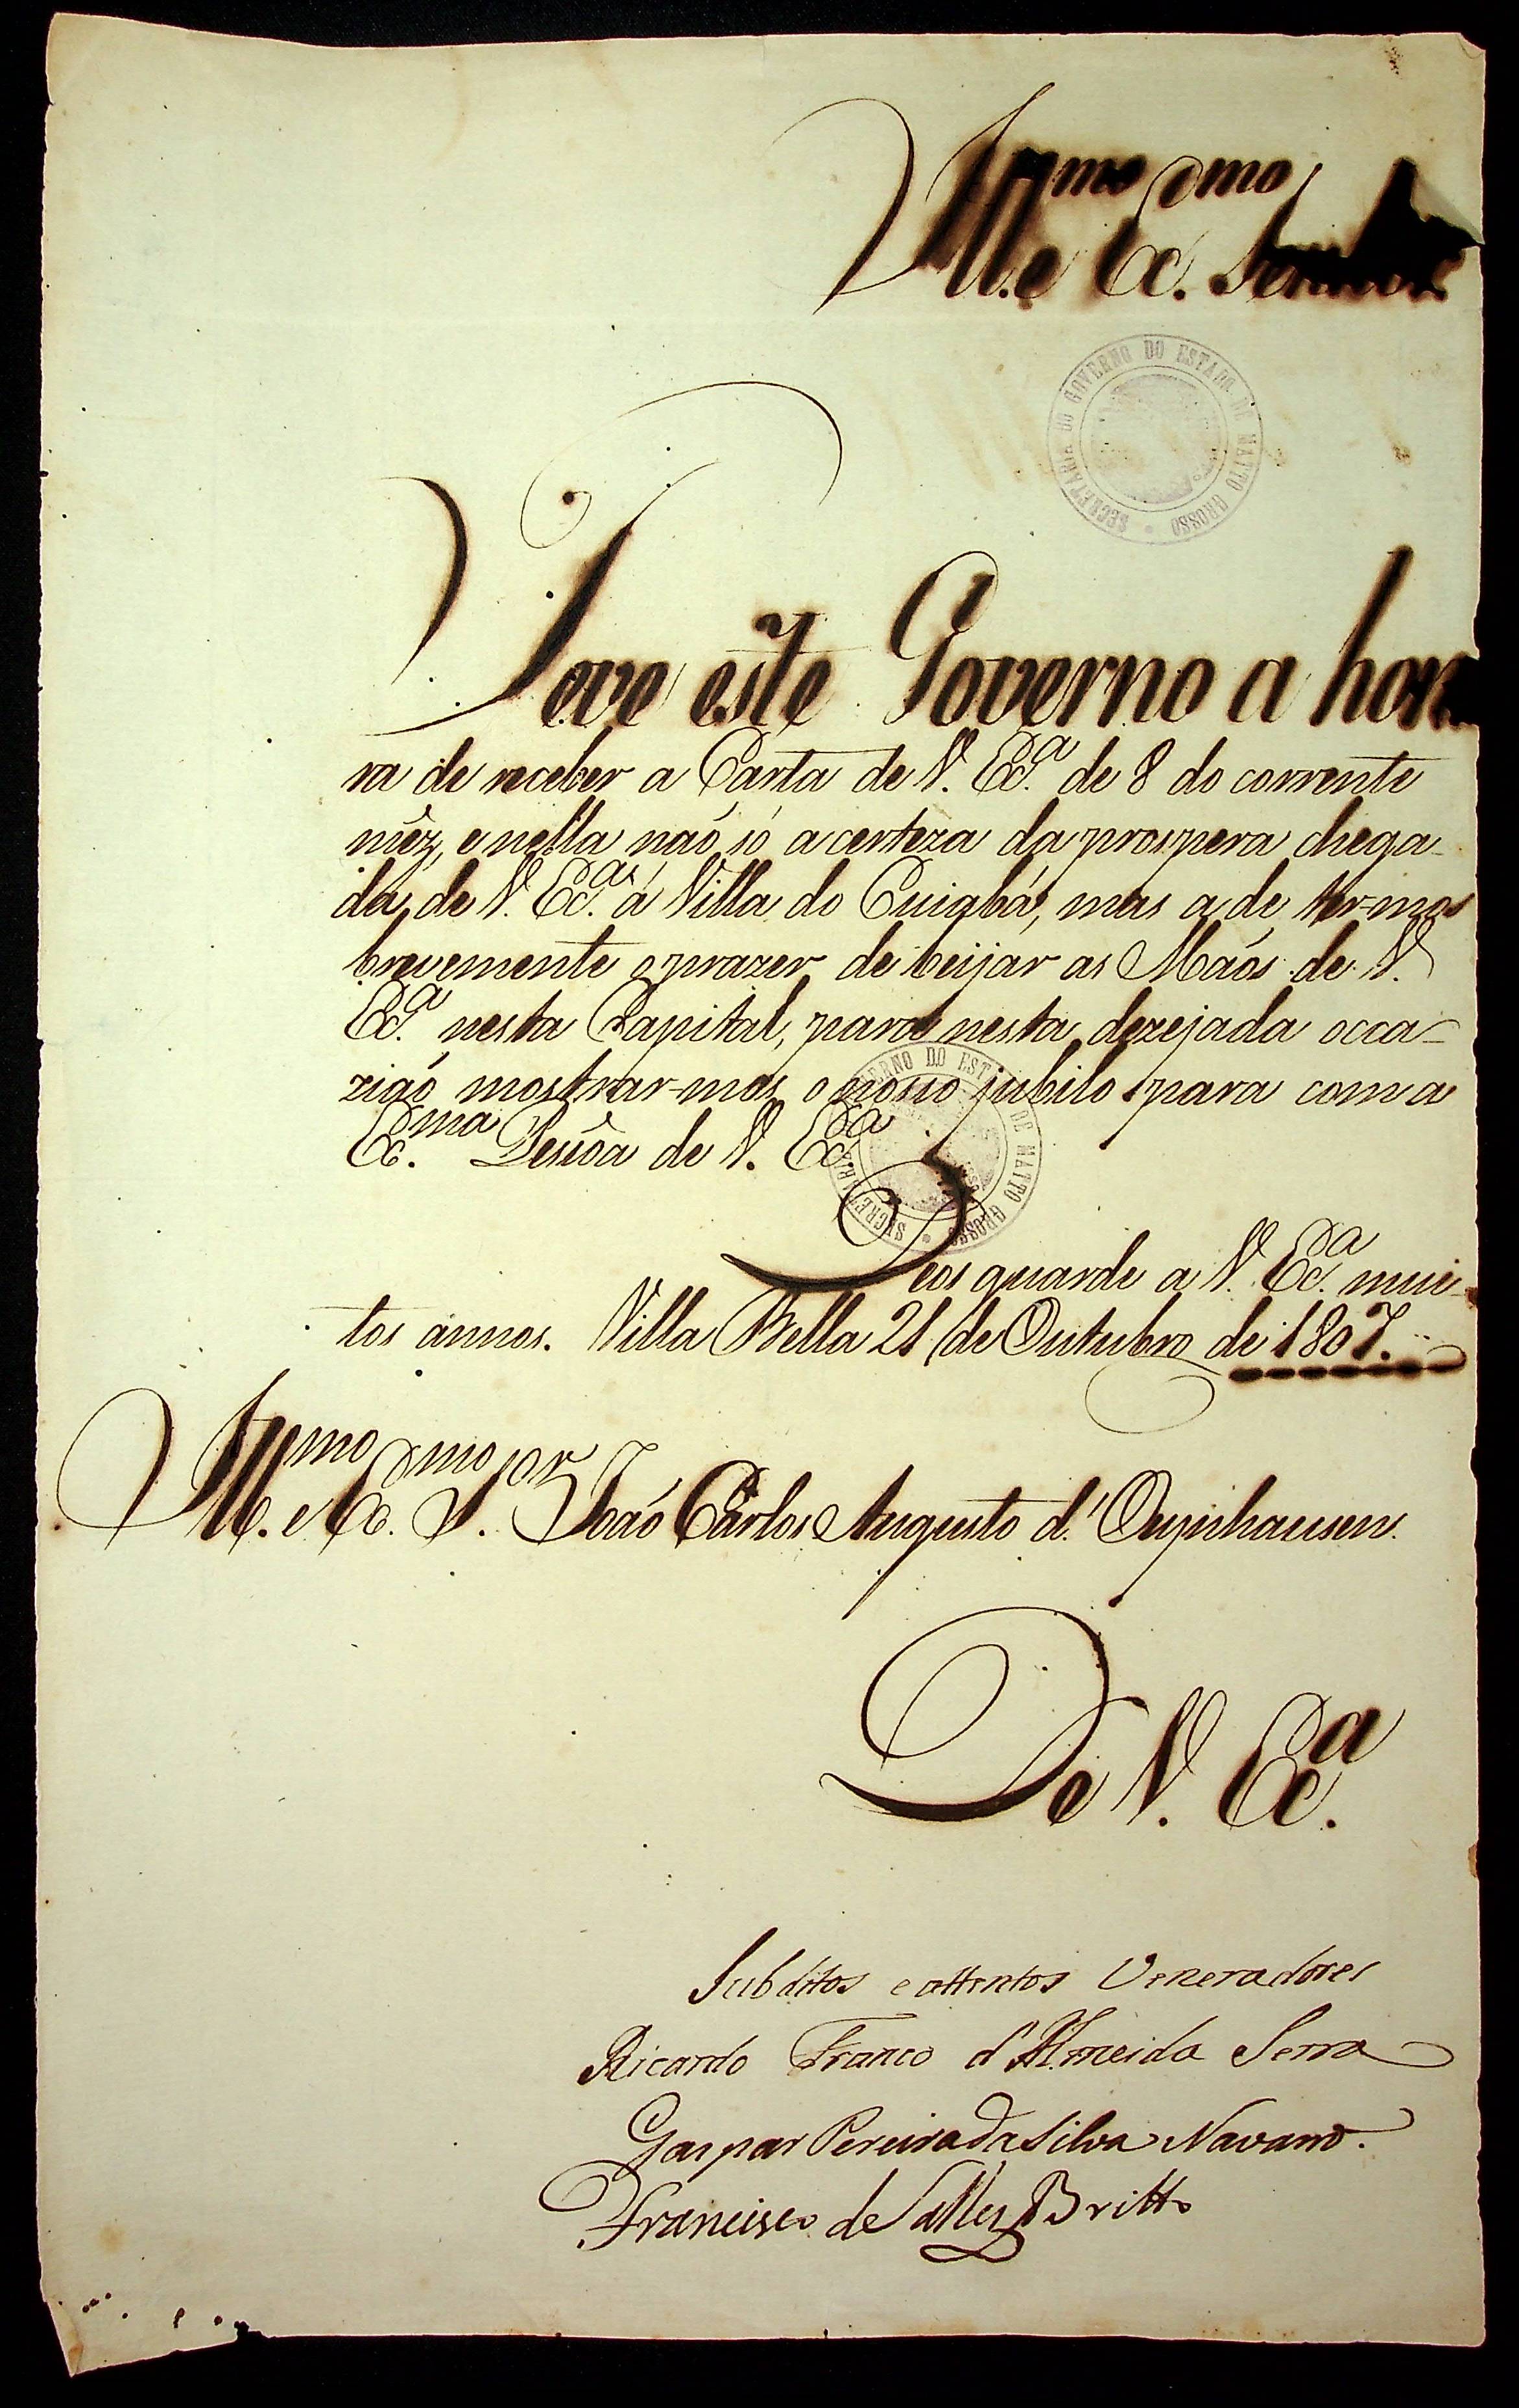 Ill.mo e Ex.mo Senhor
SECRETARIA DO GOVERNO DO ESTADO DE MATTO GROSSO
Teve este Governo a hon
ra de receber a Carta de V. Ex.a de 8 do corrente
mêz, e nella naõ só a certeza da prospera chega-
da de V. Ex.as á Villa do Cuiabá, mas a de ter-mos
brevemente o prazer de beijar as Maõs de V.
Ex.a nesta Capital, para nesta dezejada occa-
ziaõ mostrar-mos o nosso jubilo para com a
Ex.ma Pesôa de V. Ex.a
SECRETARIA DO GOVERNO DO ESTADO DE MATTO GROSSO
Deos guarde a V. Ex.a mui-
tos annos. Villa Bella 21 de Outubro de 1807.
Ill.mo e Ex.mo S.or Joaõ Carlos Augusto d'Oeynhausen.
De V. Ex.a
Subditos e attentos Veneradores
Ricardo Franco d'Almeida Serra
Gaspar Pereira da Silva Navarro.
Francisco de Salles Britto